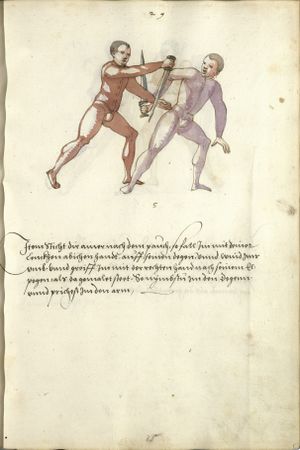 29
5
Item Sticht dir ainer nach dem pauch, so fall Im mit deiner
Linckhen abichen hand auff seinen degen vnnd wind Im
vmb vnnd greiff Im mit der rechten hand nach seinem El
pogen als da gemalet stet. So nimbstu im den degenn
vnnd prichest Im den arm